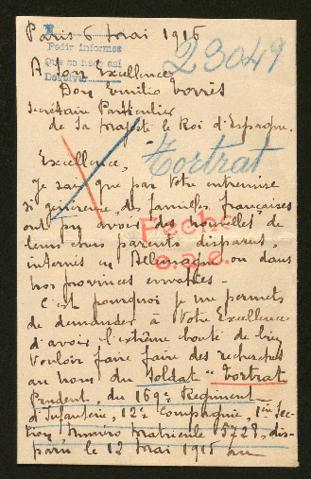 Paris 6 Mai 1916
Pedir informes
Que se haga así
23049
A Son Excellence
Don Emilio Torrès
Secrétaire Particulier
de Sa Majesté le Roi d'Espagne.
Tortrat
Excellence,
Je sais que par votre entremise
si généreuse, des familles françaises
ont pu avoir des nouvelles de
leurs chers parents disparus,
Fecha
e.a.e.
internés en Allemagne ou dans
nos provinces envahies -
C'est pourquoi je me permets
de demander à Votre Excellence
d'avoir l'extrême bonté de bien
vouloir faire faire des recherches
au nom du Soldat "Tortrat
Prudent, du 169e Régiment
d'Infanterie, 12e Compagnie, 1ère Sec-
tion, Numéro matricule 5728, dis-
paru le 12 Mai 1915 au